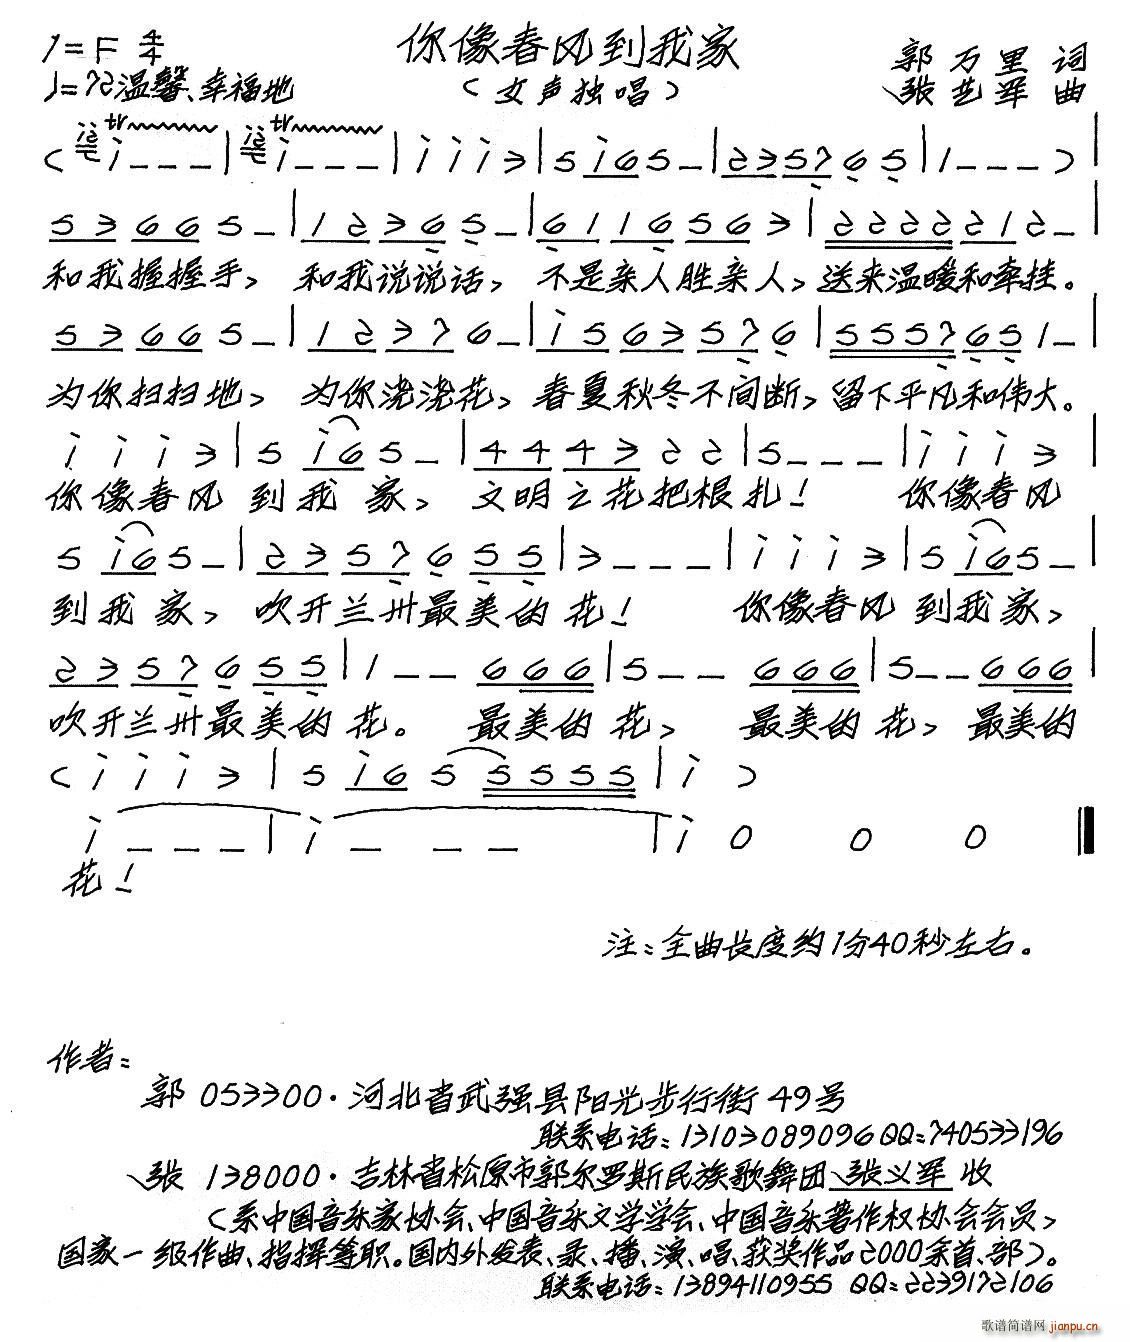 1=F 4/4 你像春风到我家 郭万里 词
♩=72温馨、幸福地 (女声独唱) 张艺军 曲
( i - - - | i - - - | i i i 3 | 5 i 6 5 - | 2 3 5 7 6 5 | 1 - - - ) |
5 3 6 6 5 - | 1 2 3 6 5 - | 6 1 1 6 5 6 3 | 2 2 2 2 2 1 2 - |
和我握握手, 和我说说话, 不是亲人胜亲人, 送来温暖和牵挂。
5 3 6 6 5 - | 1 2 3 7 6 - | i 5 6 3 5 7 6 | 5 5 5 7 6 5 1 - |
为你扫扫地, 为你浇浇花, 春夏秋冬不间断, 留下平凡和伟大。
i i i 3 | 5 i 6 5 - | 4 4 4 3 2 2 | 5 - - - | i i i 3 |
你像春风 到我家, 文明之花把根扎! 你像春风
5 i 6 5 - | 2 3 5 7 6 5 5 | 3 - - - | i i i 3 | 5 i 6 5 - |
到我家, 吹开兰州最美的花! 你像春风 到我家,
2 3 5 7 6 5 5 | 1 - - 6 6 6 | 5 - - 6 6 6 | 5 - - 6 6 6 |
吹开兰州最美的花。 最美的花, 最美的花, 最美的
( i i i 3 | 5 i 6 5 5 5 5 5 | i )
i - - - | i - - - | i 0 0 0
花!
注:全曲长度约1分40秒左右。
作者:
郭 053300·河北省武强县阳光步行街49号
联系电话:13103089096 QQ:740533196
张 138000·吉林省松原市郭尔罗斯民族歌舞团 张义军 收
(系中国音乐家协会、中国音乐文学学会、中国音乐著作权协会会员,
国家一级作曲、指挥等职。国内外发表、录、播、演、唱、获奖作品2000余首、部)。
联系电话:13894110955 QQ:2239172106
歌谱简谱网 jianpu.cn